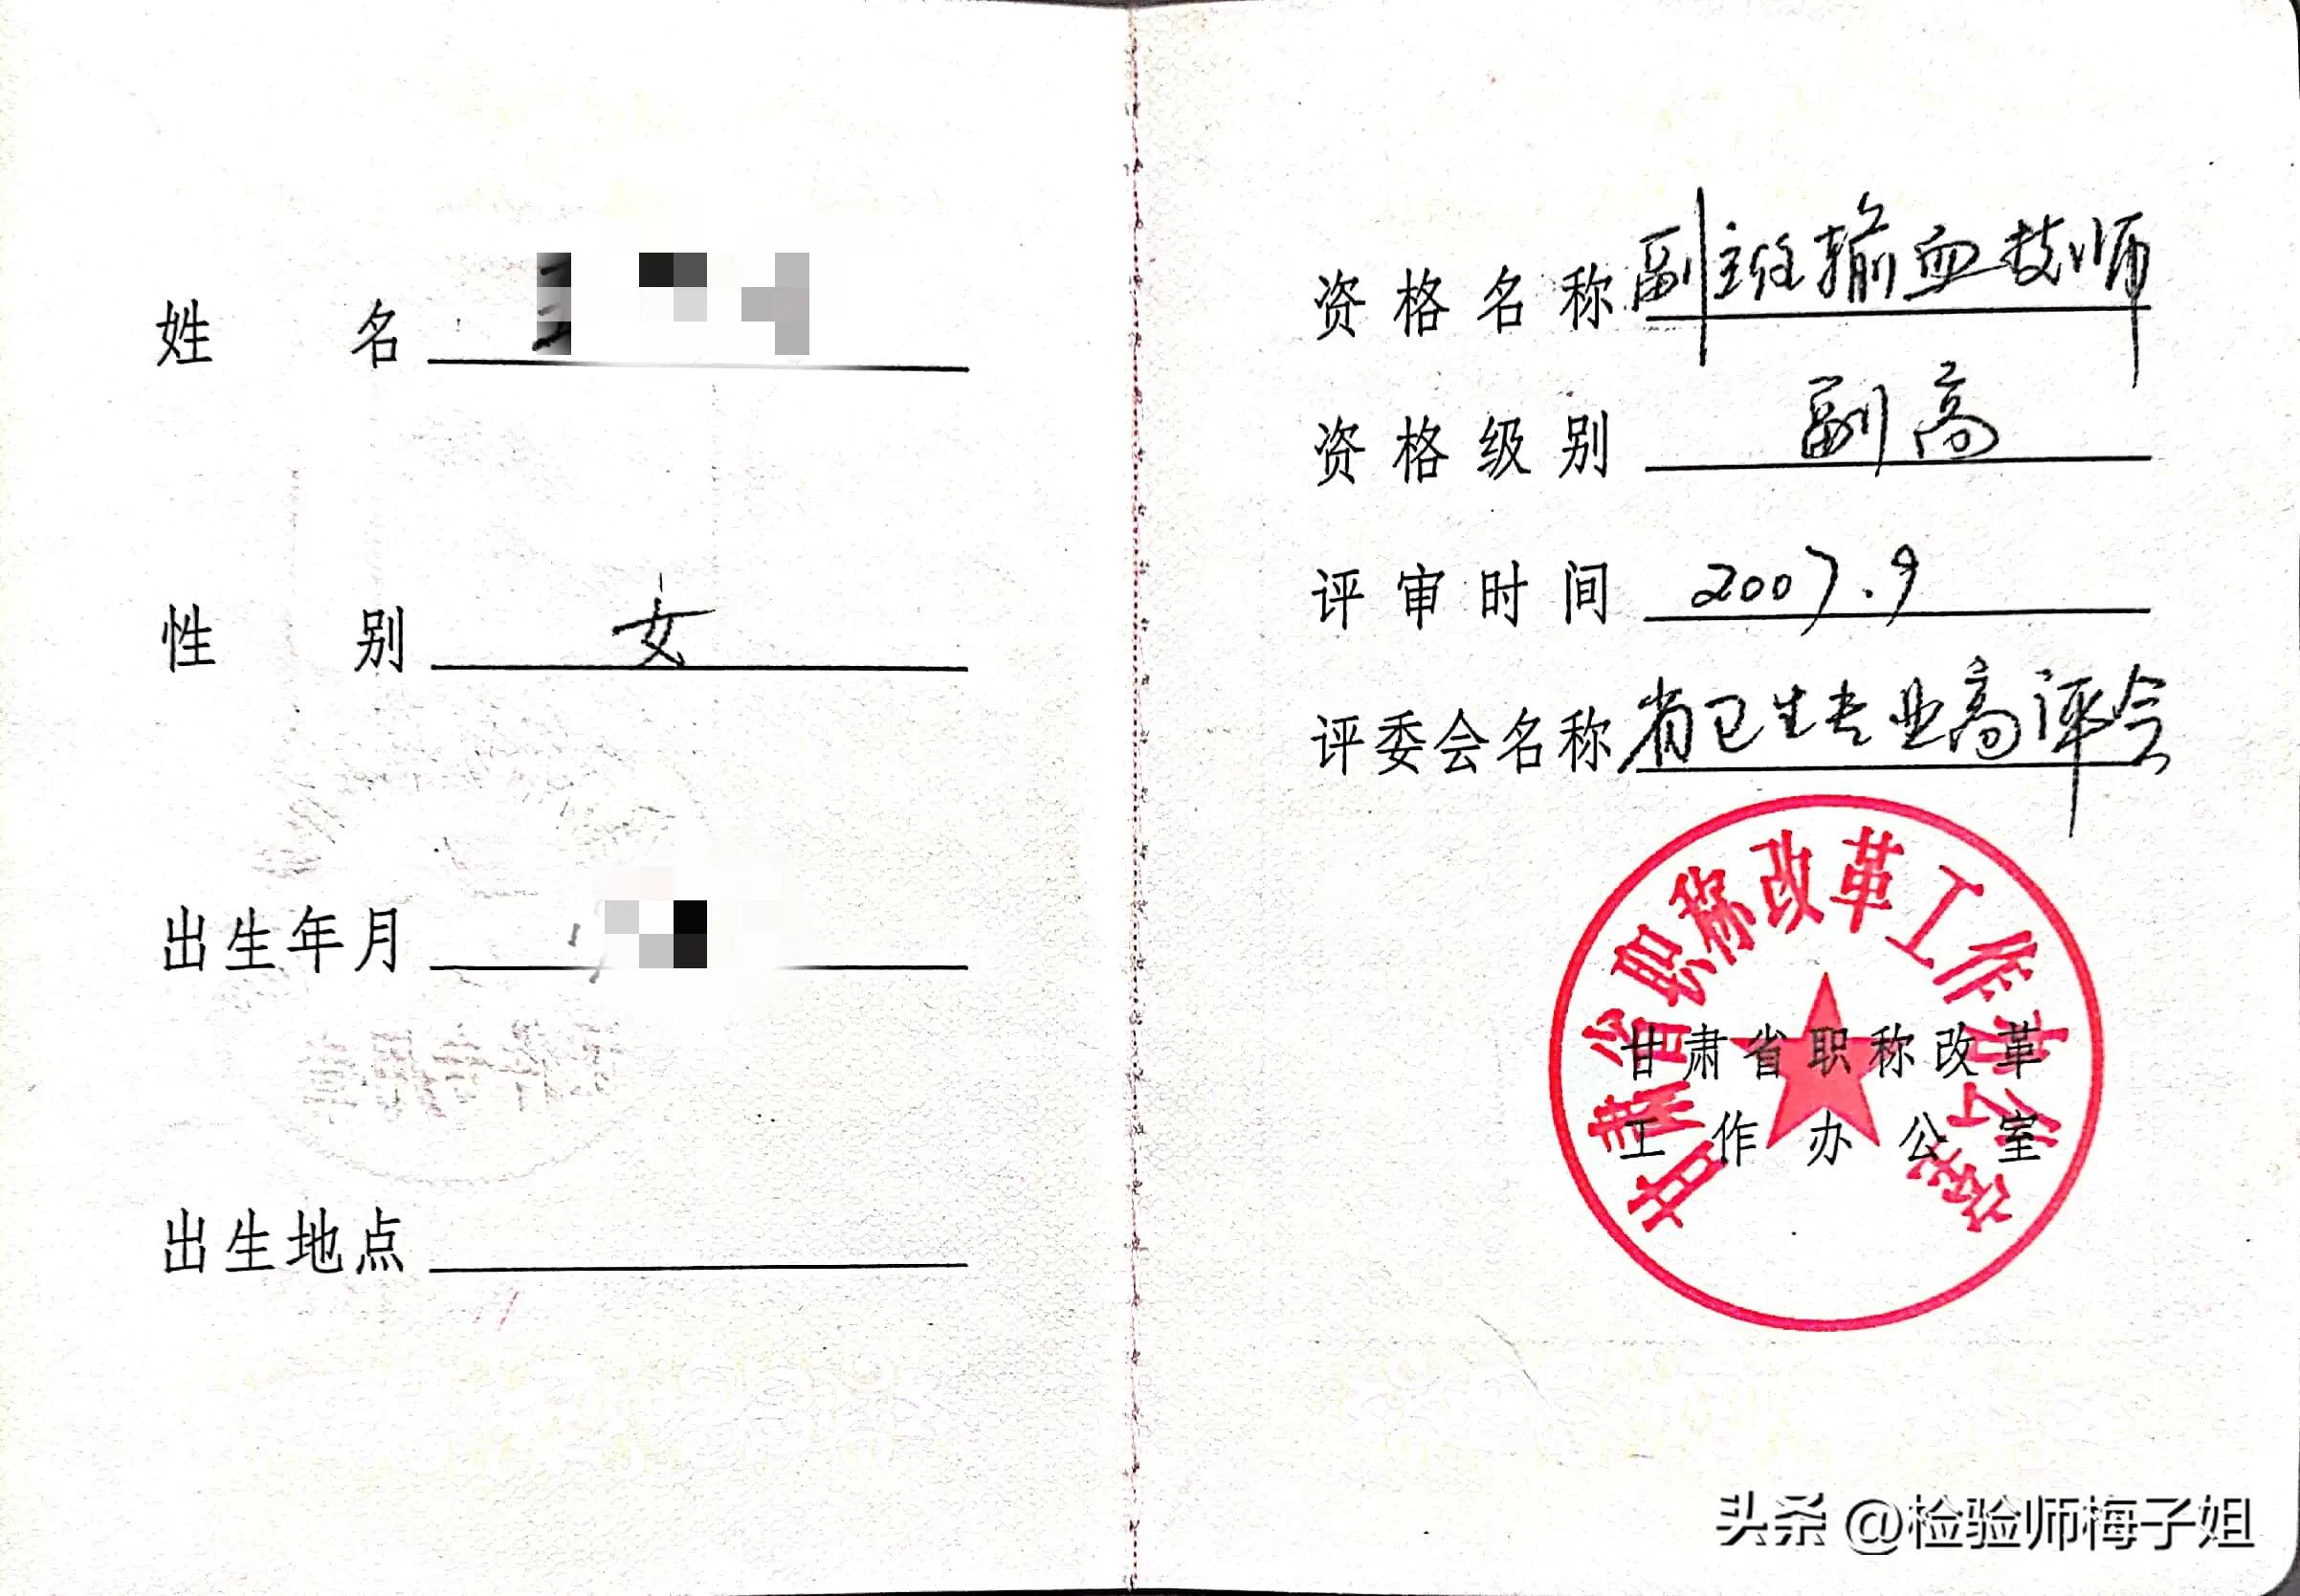 姓名
性别 女
出生年月
出生地点
资格名称 副主任输血技师
资格级别 副高
评审时间 2007.9
评委会名称 省卫生专业高评会
甘肃省职称改革工作办公室
甘肃省职称改革
工作办公室
头条 @检验师梅子姐